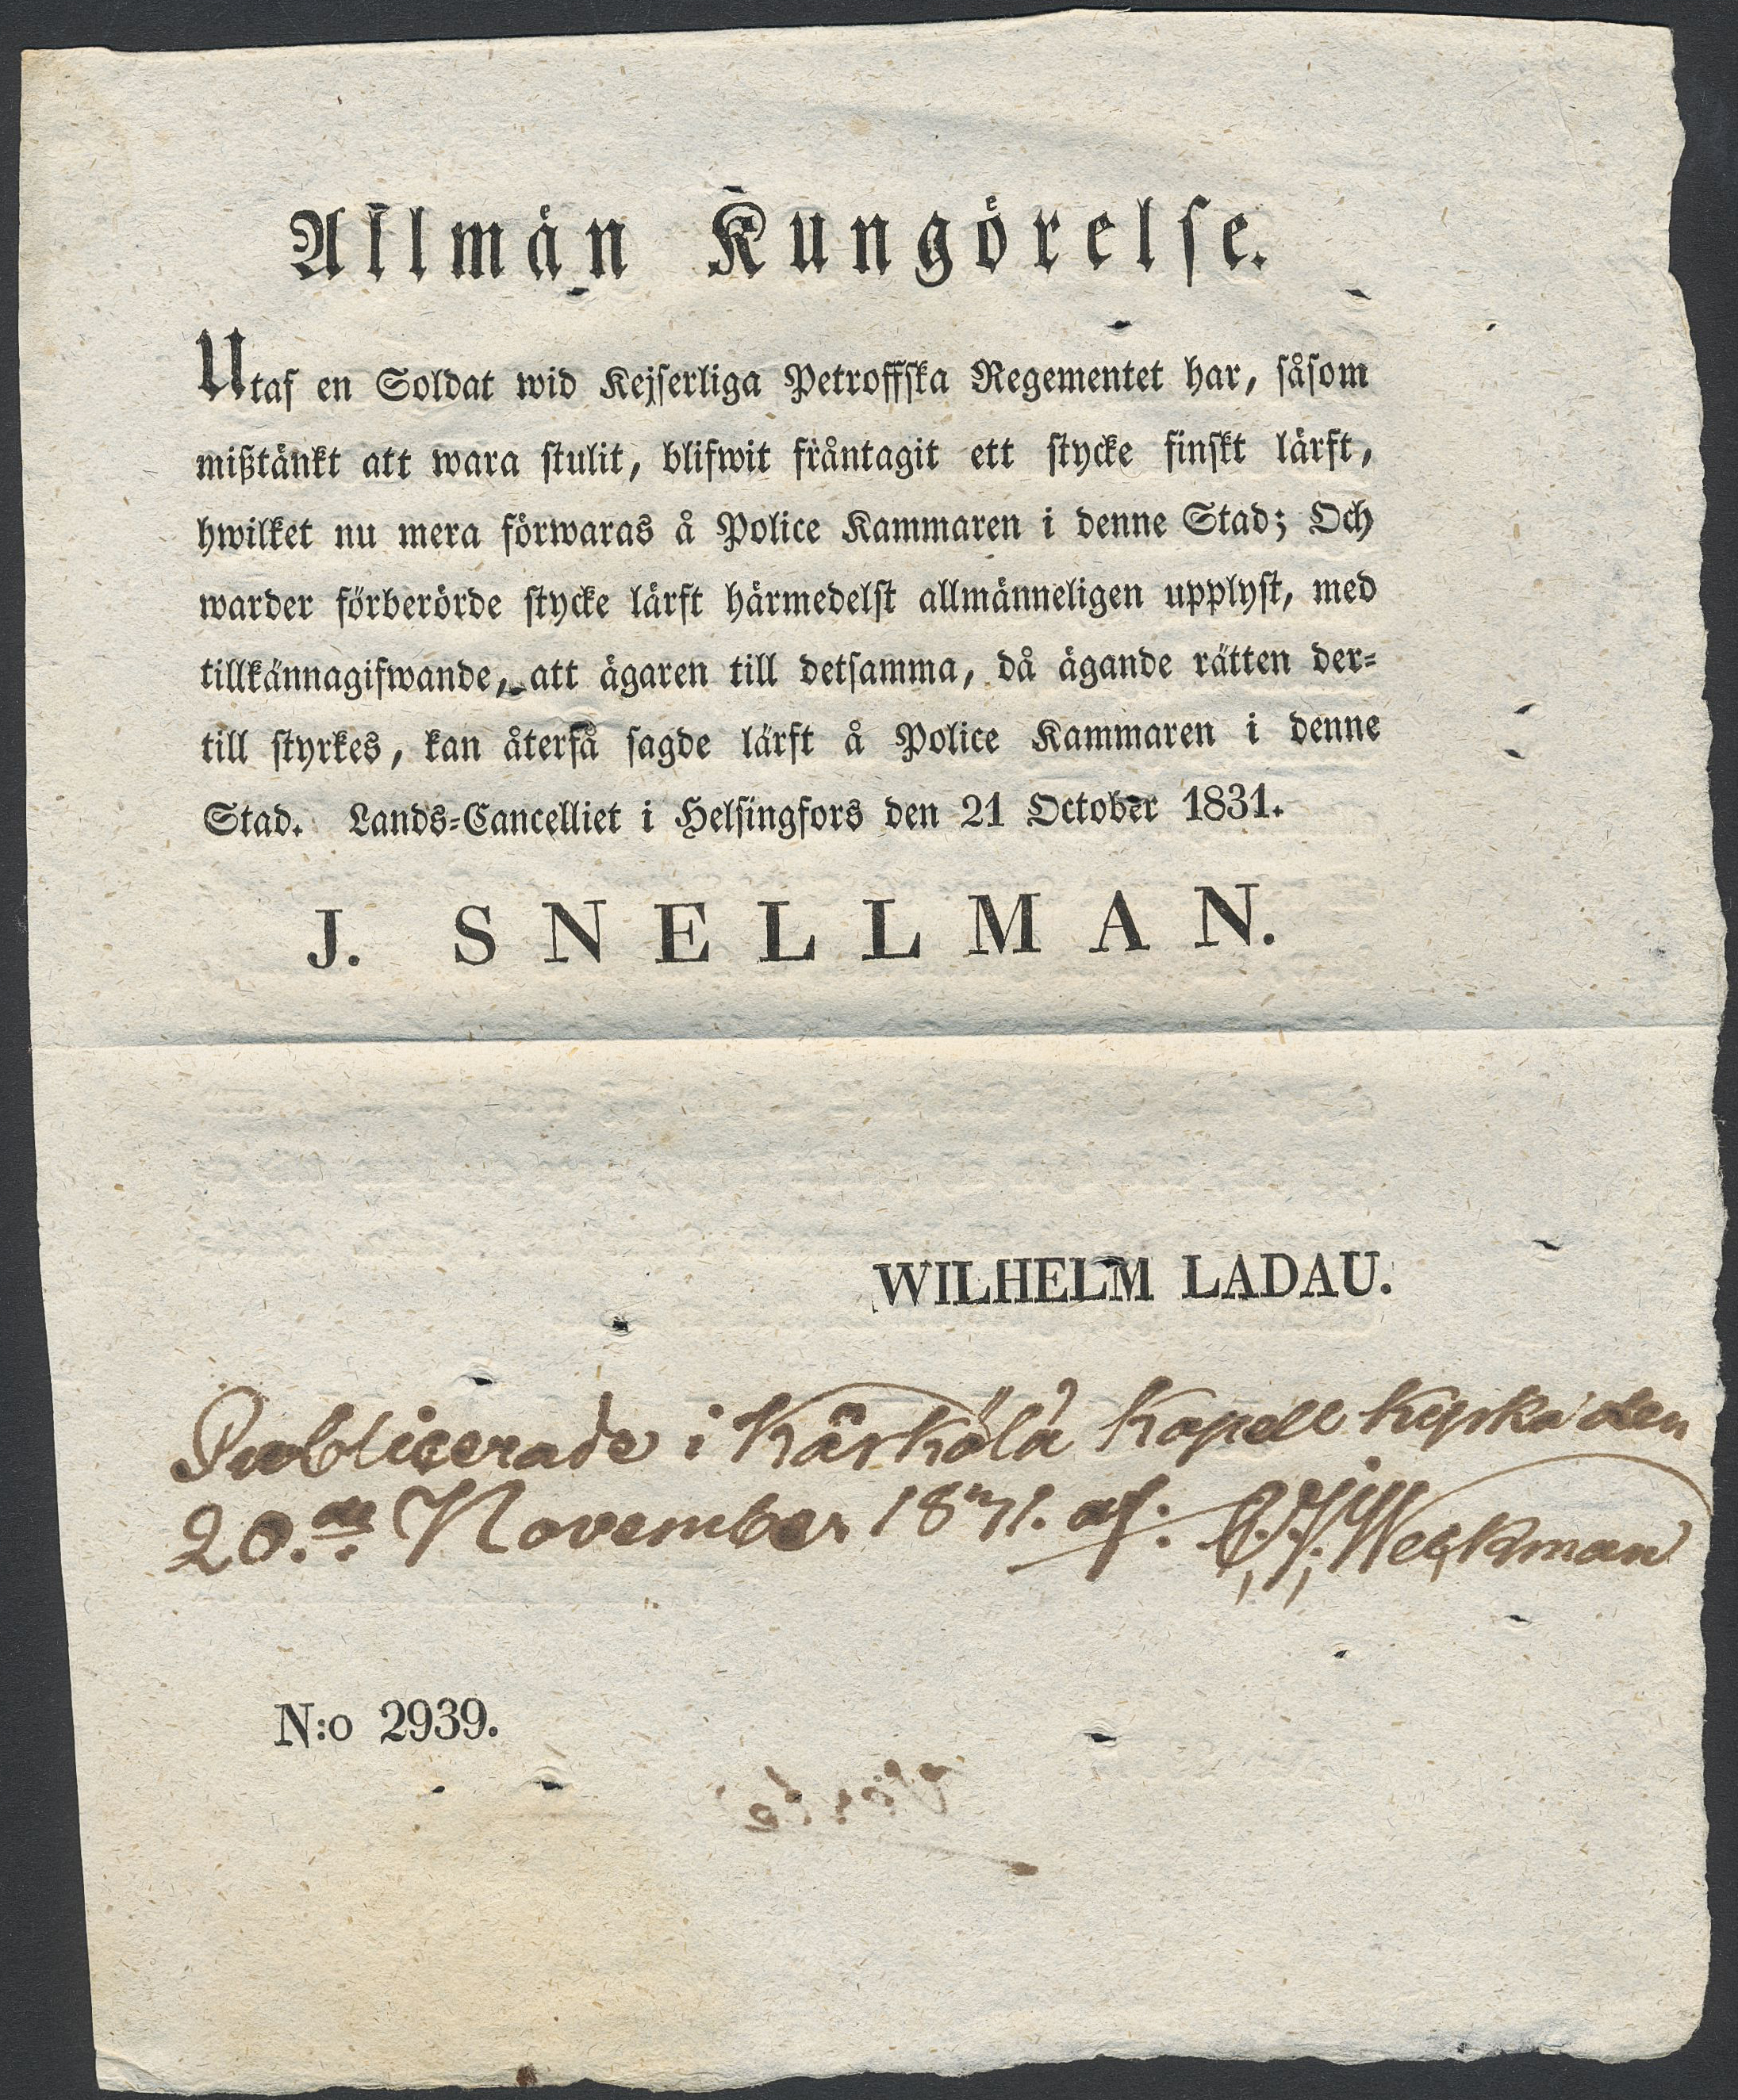 Allmän Kungörelse.
Utaf en Soldat wid Kejserliga Petroffska Regementet har, såsom
mißtänkt att wara stulit, blifwit fråntagit ett stycke finskt lärft,
hwilket nu mera förwaras å Police Kammaren i denne Stad; Och
warder förberörde stycke lärft härmedelst allmänneligen upplyst, med
tillkännagifwande, att ägaren till detsamma, då ägande rätten der-
till styrkes, kan återfå sagde lärft å Police Kammaren i denne
Stad. Lands-Cancelliet i Helsingfors den 21 October 1831.
J. SNELLMAN.
WILHELM LADAU.
Publicerade i Kärkölä Kapell Kyrka den
20.de November 1831. af: Weckman
N:o 2939.